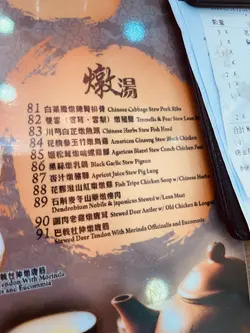 燉湯
81 白菜膽燉雞腳排骨 Chinese Cabbage Stew Pork Ribs
82 雙雪（雪耳、雪梨）燉豬𦟌 Tremella & Pear Stew Lean
83 川芎白芷燉魚頭 Chinese Herbs Stew Fish Head
84 花旗參玉竹燉烏雞 American Ginseng Stew Black Chicken
85 Agaricus Blazei Stew Conch Chicken Feet
86 黑蒜燉乳鴿 Black Garlic Stew Pigeon
87 杏汁燉豬肺 Apricot Juice Stew Pig Lung
88 花膠淮山紅棗燉雞 Fish Tripe Chicken Soup w/ Chinese Herbs
89 石斛麥冬山藥燉瘦肉
Dendrobium Nobile & Japonicus Stewed w/ Lean Meat
90 圓肉老雞燉鹿茸 Stewed Deer Antler w/ Old Chicken &
91 巴戟杜仲燉鹿筋
Stewed Deer Tendon With Morinda Officinalis and Eucommia
戟杜仲燉鹿筋
Tendon With Morinda
and Eucommia